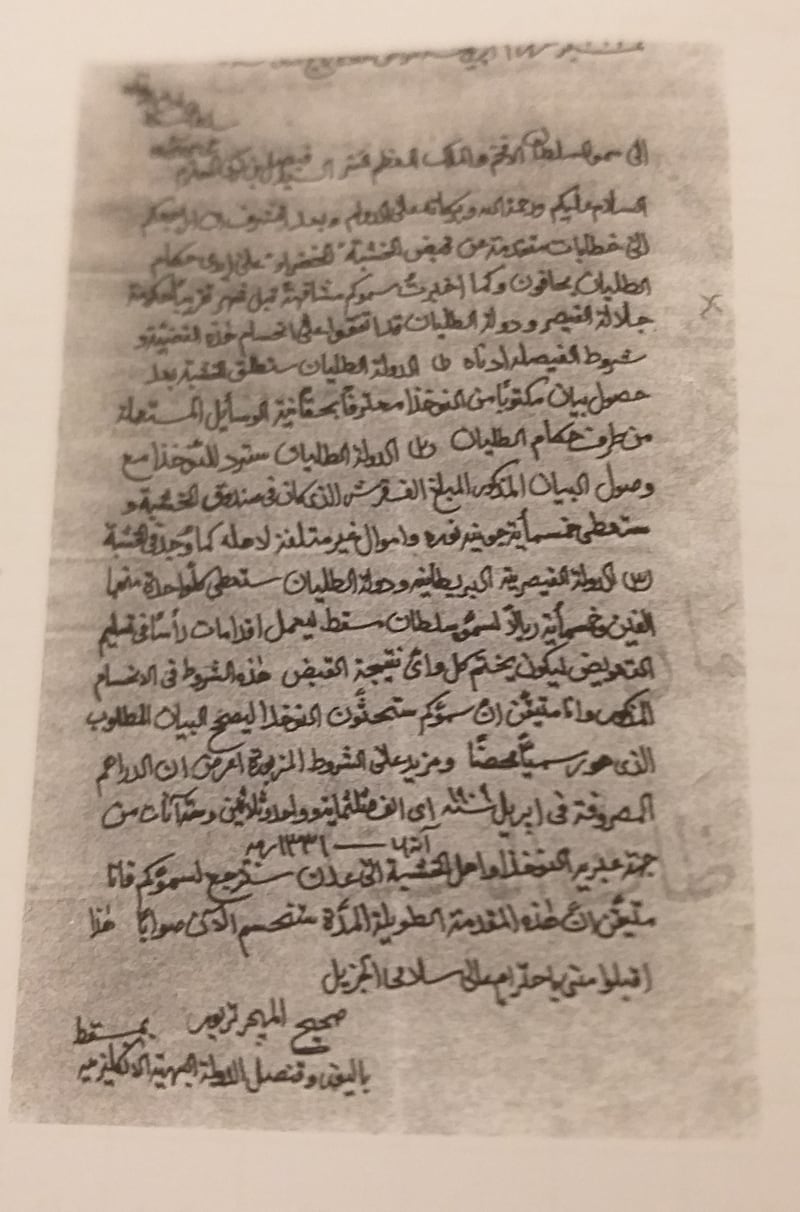 الى سمو السلطان الافخم والملك المعظم السيد فيصل بن تركي
السلام عليكم ورحمة الله وبركاته على الدوام وبعد اتشرف ان اراجعكم
الى خطابات متقدمة عن قبض الخشبة "الخضراء" على ايدى حكام
الطليان بحافون وكما اخبرت سموكم مشافهة قبل شهر تقريبا حكومة
جلالة القيصر ودولة الطليان قد اتفقوا على انحسام هذه القضية و
شروط الفيصلة ادناه (١) الدولة الطليان ستطلق الخشبة بعد
حصول بيان مكتوبا من النوخذا معترفا بحقانية الوسائل المستعملة
من طرف حكام الطليان (٢) الدولة الطليان سترد للنوخذا مع
وصول البيان المذكور المبلغ الف قرش الذى كان فى صندوق الخشبة و
ستعطى خمسمأية روبية واموال غير متلفة لاهله كما وجد فى الخشبة
(٣) الدولة القيصرية البريطانيه ودولة الطليان ستعطى كلواحدة منهما
الفين وخمسمأية ريالا لسمو سلطان مسقط ليعمل اقدامات رأسا فى تسليم
التعويض ليكون يختم كل واى نتيجة القبض هذه الشروط فى الانحسام
المذكور وانا متيقن ان سموكم ستحثون النوخذا ليصحح البيان المطلوب
الذى هو رسميا محضا ومزيد على الشروط المزبورة اعرض ان الدراهم
المصروفة فى ابريل سنه ١٩٠٩ اى الف وثلثمايه وواحد وثلاثين وستة آنات من
آنه ٦ — ١٣٣١ ربيه
جهة عبرير النوخذا واهل الخشبة الى عدن سترجع لسموكم فانا
متيقن ان هذه المقدمة الطويلة المدة ستنحسم الآن صوابا هذا
اقبلوا منى باحترام عالى سلامى الجزيل
صحيح الميجر تريور بمسقط
باليوز وقنصل الدولة البهية الانكليزيه